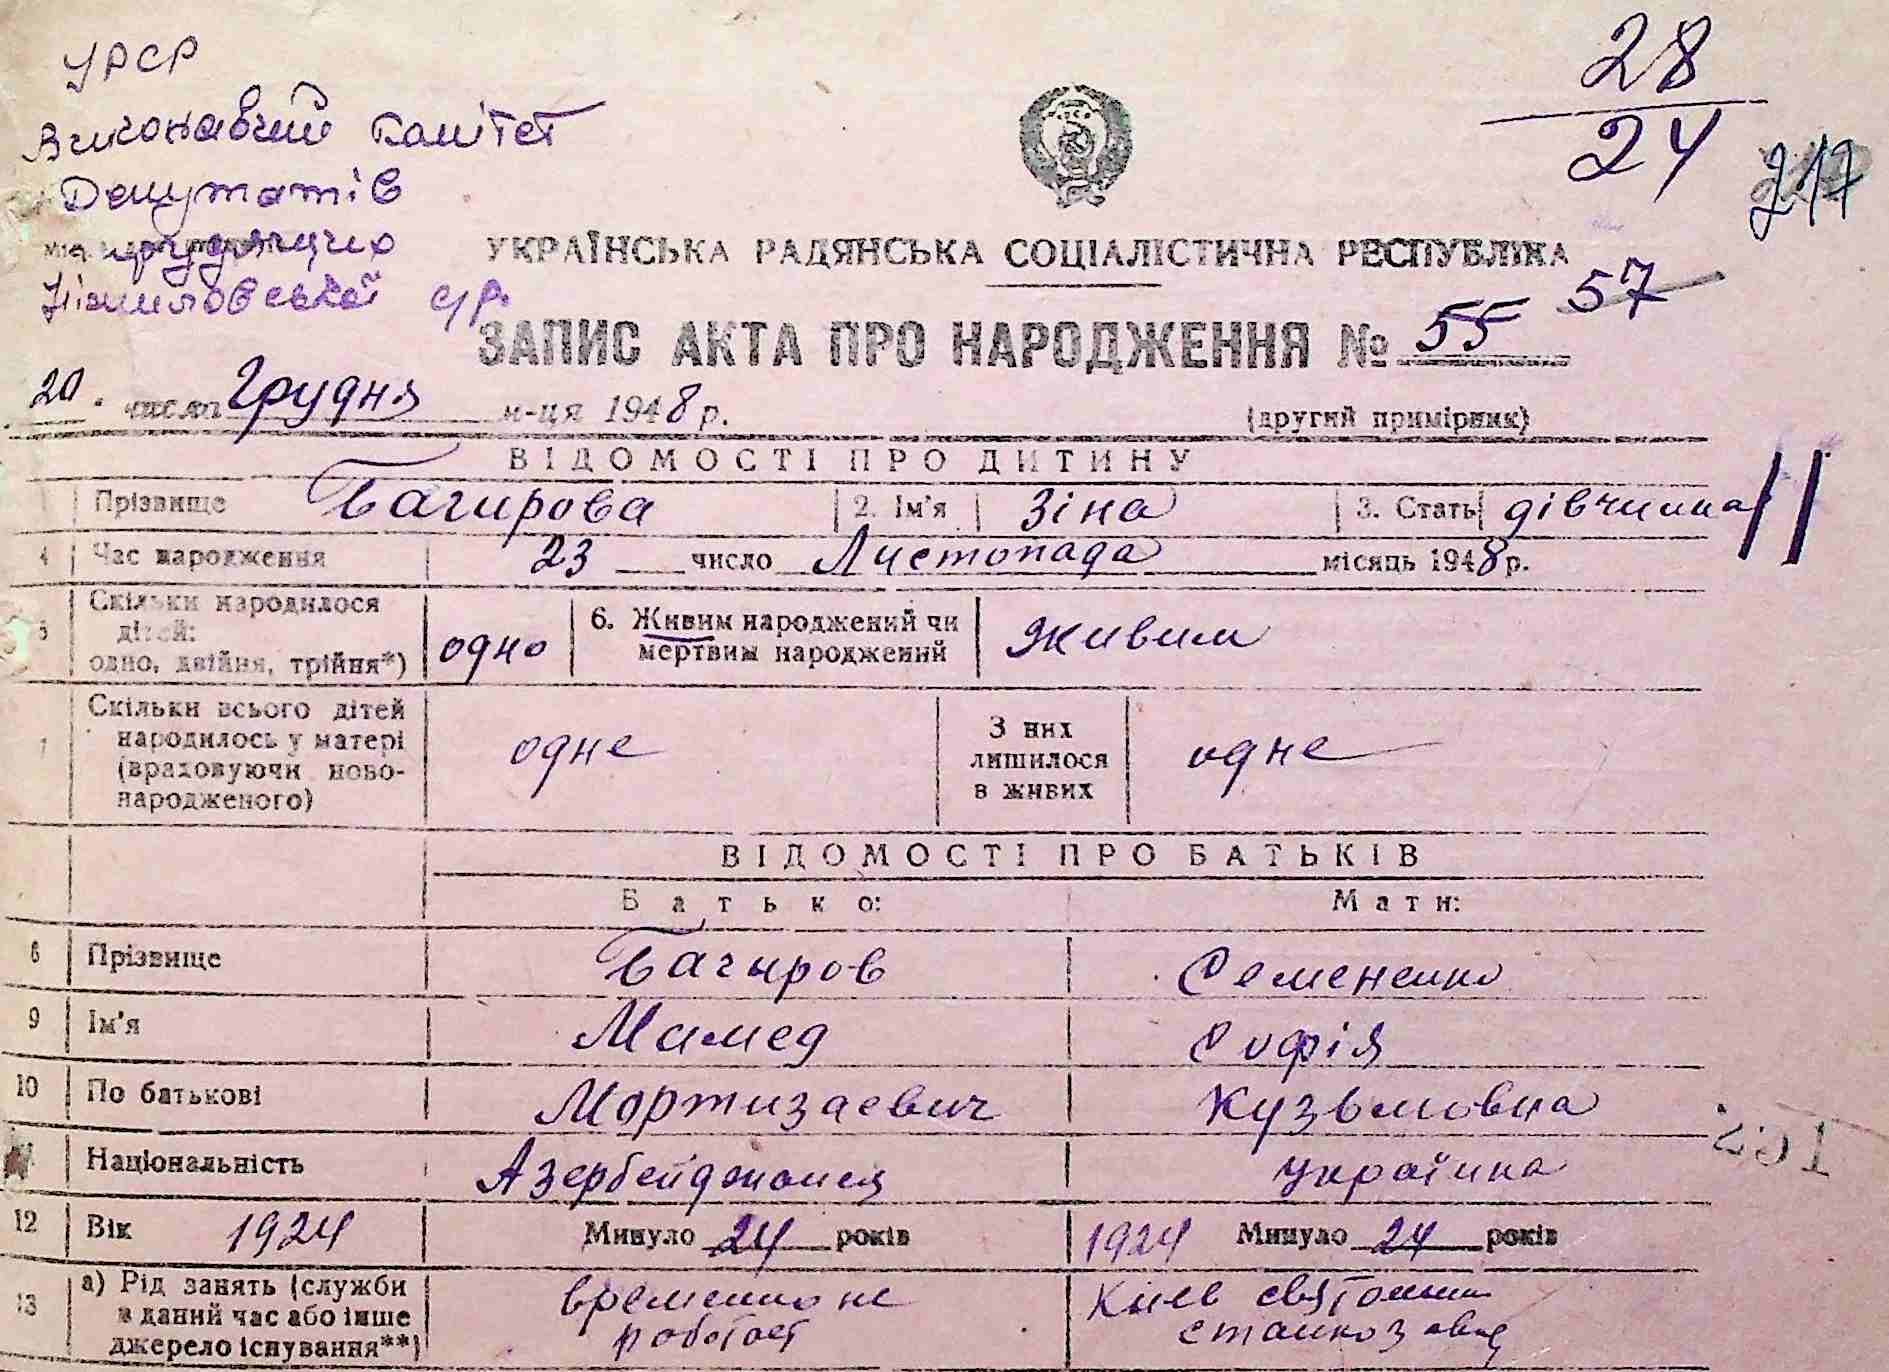 УРСР
28
24
Виконавчий Комітет
Депутатів
217
трудящих
УКРАЇНСЬКА РАДЯНСЬКА СОЦІАЛІСТИЧНА РЕСПУБЛІКА
ЗАПИС АКТА ПРО НАРОДЖЕННЯ № 55 57
20. числа Грудня м-ця 1948 р.
(другий примірник)
ВІДОМОСТІ ПРО ДИТИНУ
Прізвище Багирова 2. Ім'я Зіна 3. Стать дівчинка
4 Час народження 23 число Листопада місяць 1948 р.
5 Скільки народилося
дітей:
одно, двійня, трійня*) одно 6. Живим народжений чи
мертвим народжений живим
7 Скільки всього дітей
народилось у матері
(враховуючи ново-
народженого) одне З них
лишилося
в живих одне
ВІДОМОСТІ ПРО БАТЬКІВ
Батько: Мати:
8 Прізвище Багыров Семененко
9 Ім'я Мамед Софія
10 По батькові Мортизаевич Кузьмовна
11 Національність Азербейджанец Українка
12 Вік 1924 Минуло 24 років 1924 Минуло 24 років
13 а) Рід занять (служби
в даний час або інше
джерело існування**) временно не
работает Киев